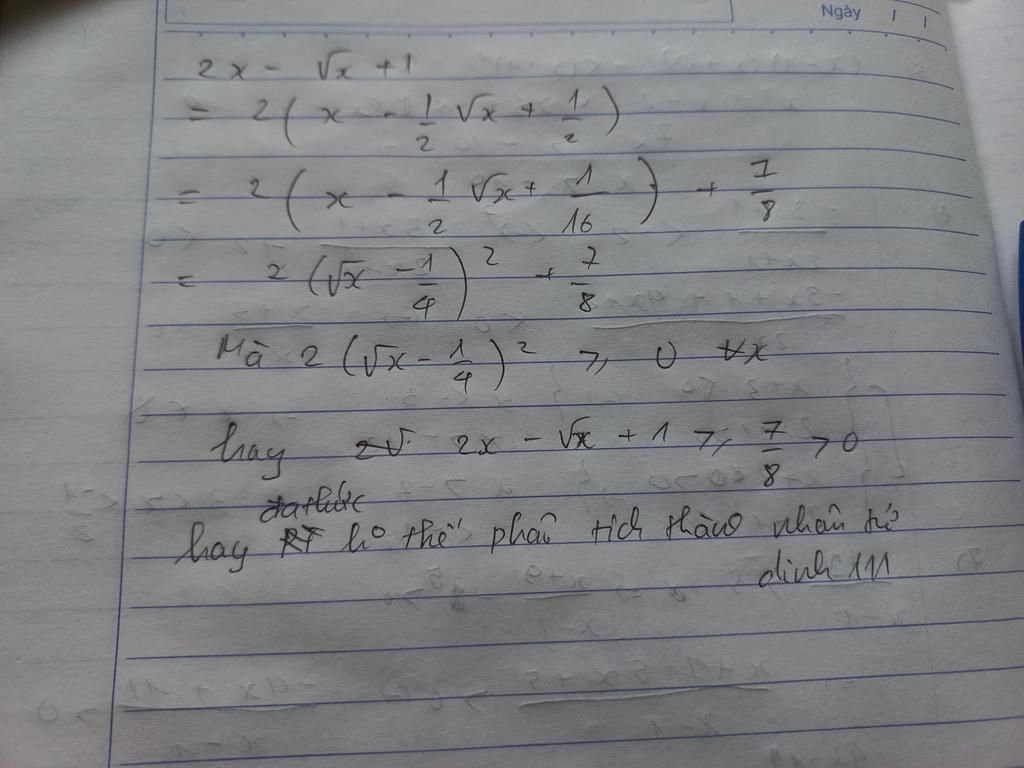 Ngày
2x - √x + 1
= 2(x - 1/2 √x + 1/2)
= 2(x - 1/2 √x + 1/16) + 7/8
= 2(√x - 1/4)² + 7/8
Mà 2(√x - 1/4)² ≥ 0 ∀x
hay 2x - √x + 1 ≥ 7/8 > 0
hay thể phân tích thành nhân tử